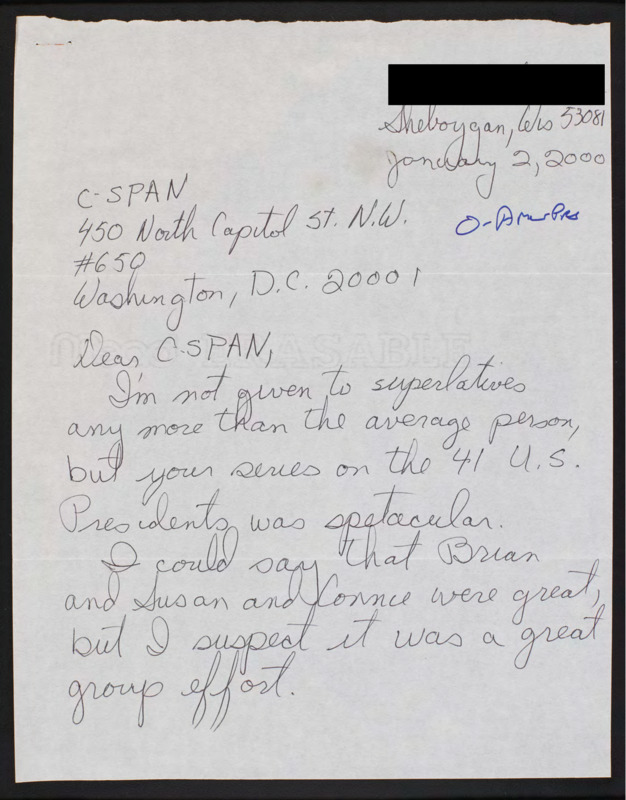 Sheboygan, Wis 53081
January 2, 2000
C-SPAN
450 North Capitol St. N.W.
#650
Washington, D.C. 20001
Dear C-SPAN,
I'm not given to superlatives
any more than the average person,
but your series on the 41 U.S.
Presidents was spetacular.
I could say that Brian
and Susan and Connie were great,
but I suspect it was a great
group effort.